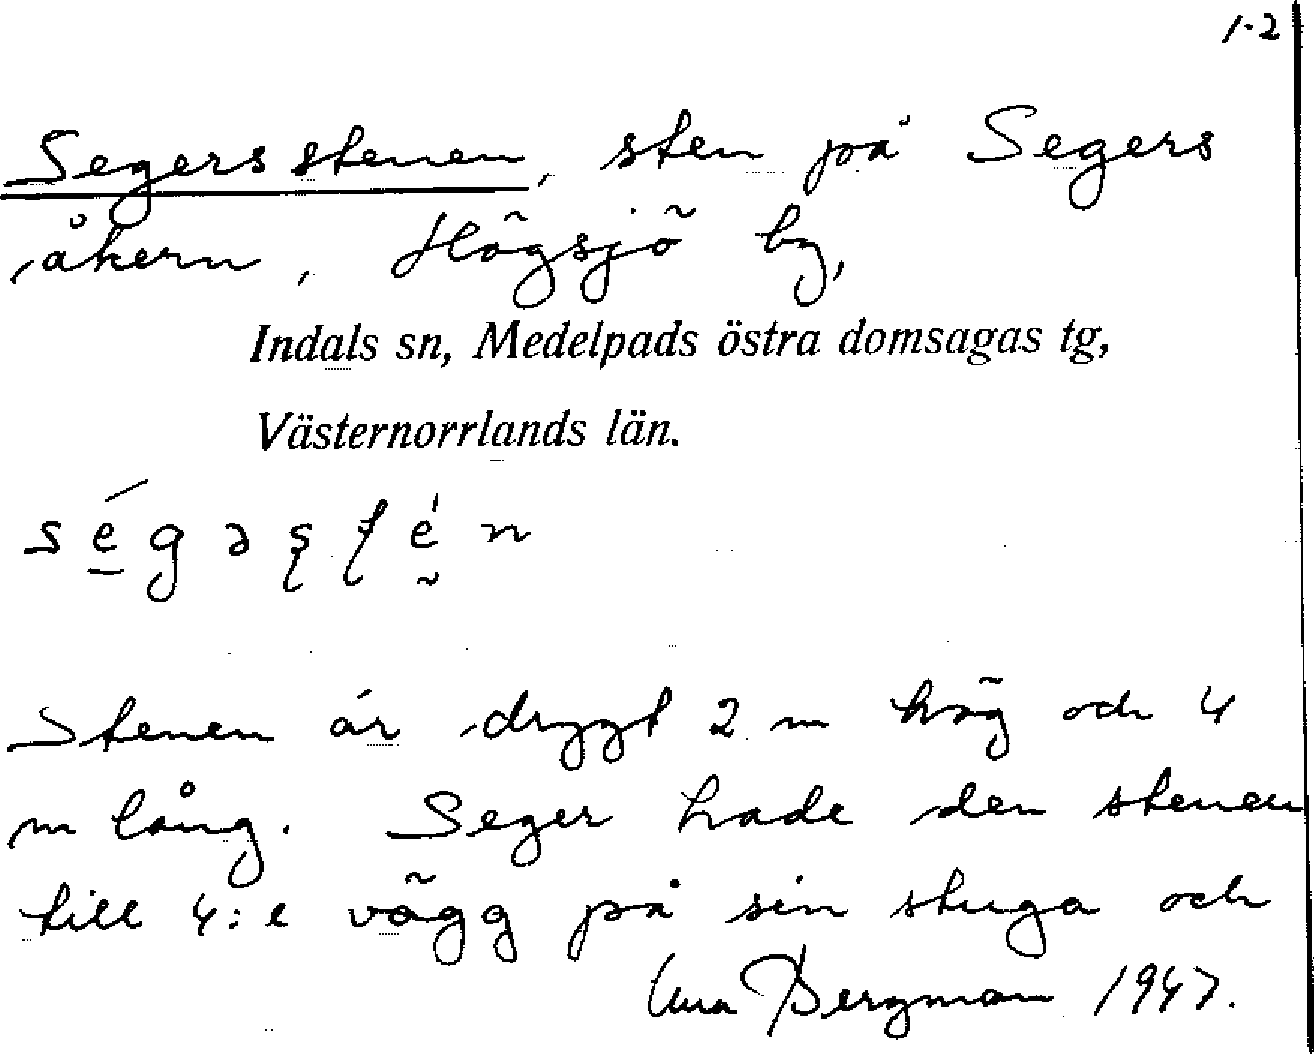 1-2
Segersstenen, sten på Segers
åkern, Högsjö by,
Indals sn, Medelpads östra domsagas tg,
Västernorrlands län.
Stenen är drygt 2 m hög och 4
m lång. Seger hade den stenen
till 4:e vägg på sin stuga och
Bergman 1947.